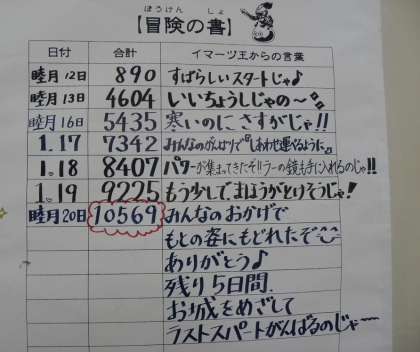 ぼうけん しょ
【冒険の書】
日付 合計 イマーツ王からの言葉
睦月12日 890 すばらしいスタートじゃ♪
睦月13日 4604 いいちょうしじゃの〜。
睦月16日 5435 寒いのにさすがじゃ!!
1.17 7342 みんなのがんばりで『しあわせ運べるように』
1.18 8407 パワーが集まってきたぞ!!ラーの鏡も手に入れるのじゃ!!
1.19 9225 もう少しで、まほうがとけそうじゃ!
睦月20日 10569 みんなのおかげで
もとの姿にもどれたぞ
ありがとう♪
残り5日間、
お城をめざして
ラストスパートがんばるのじゃ〜